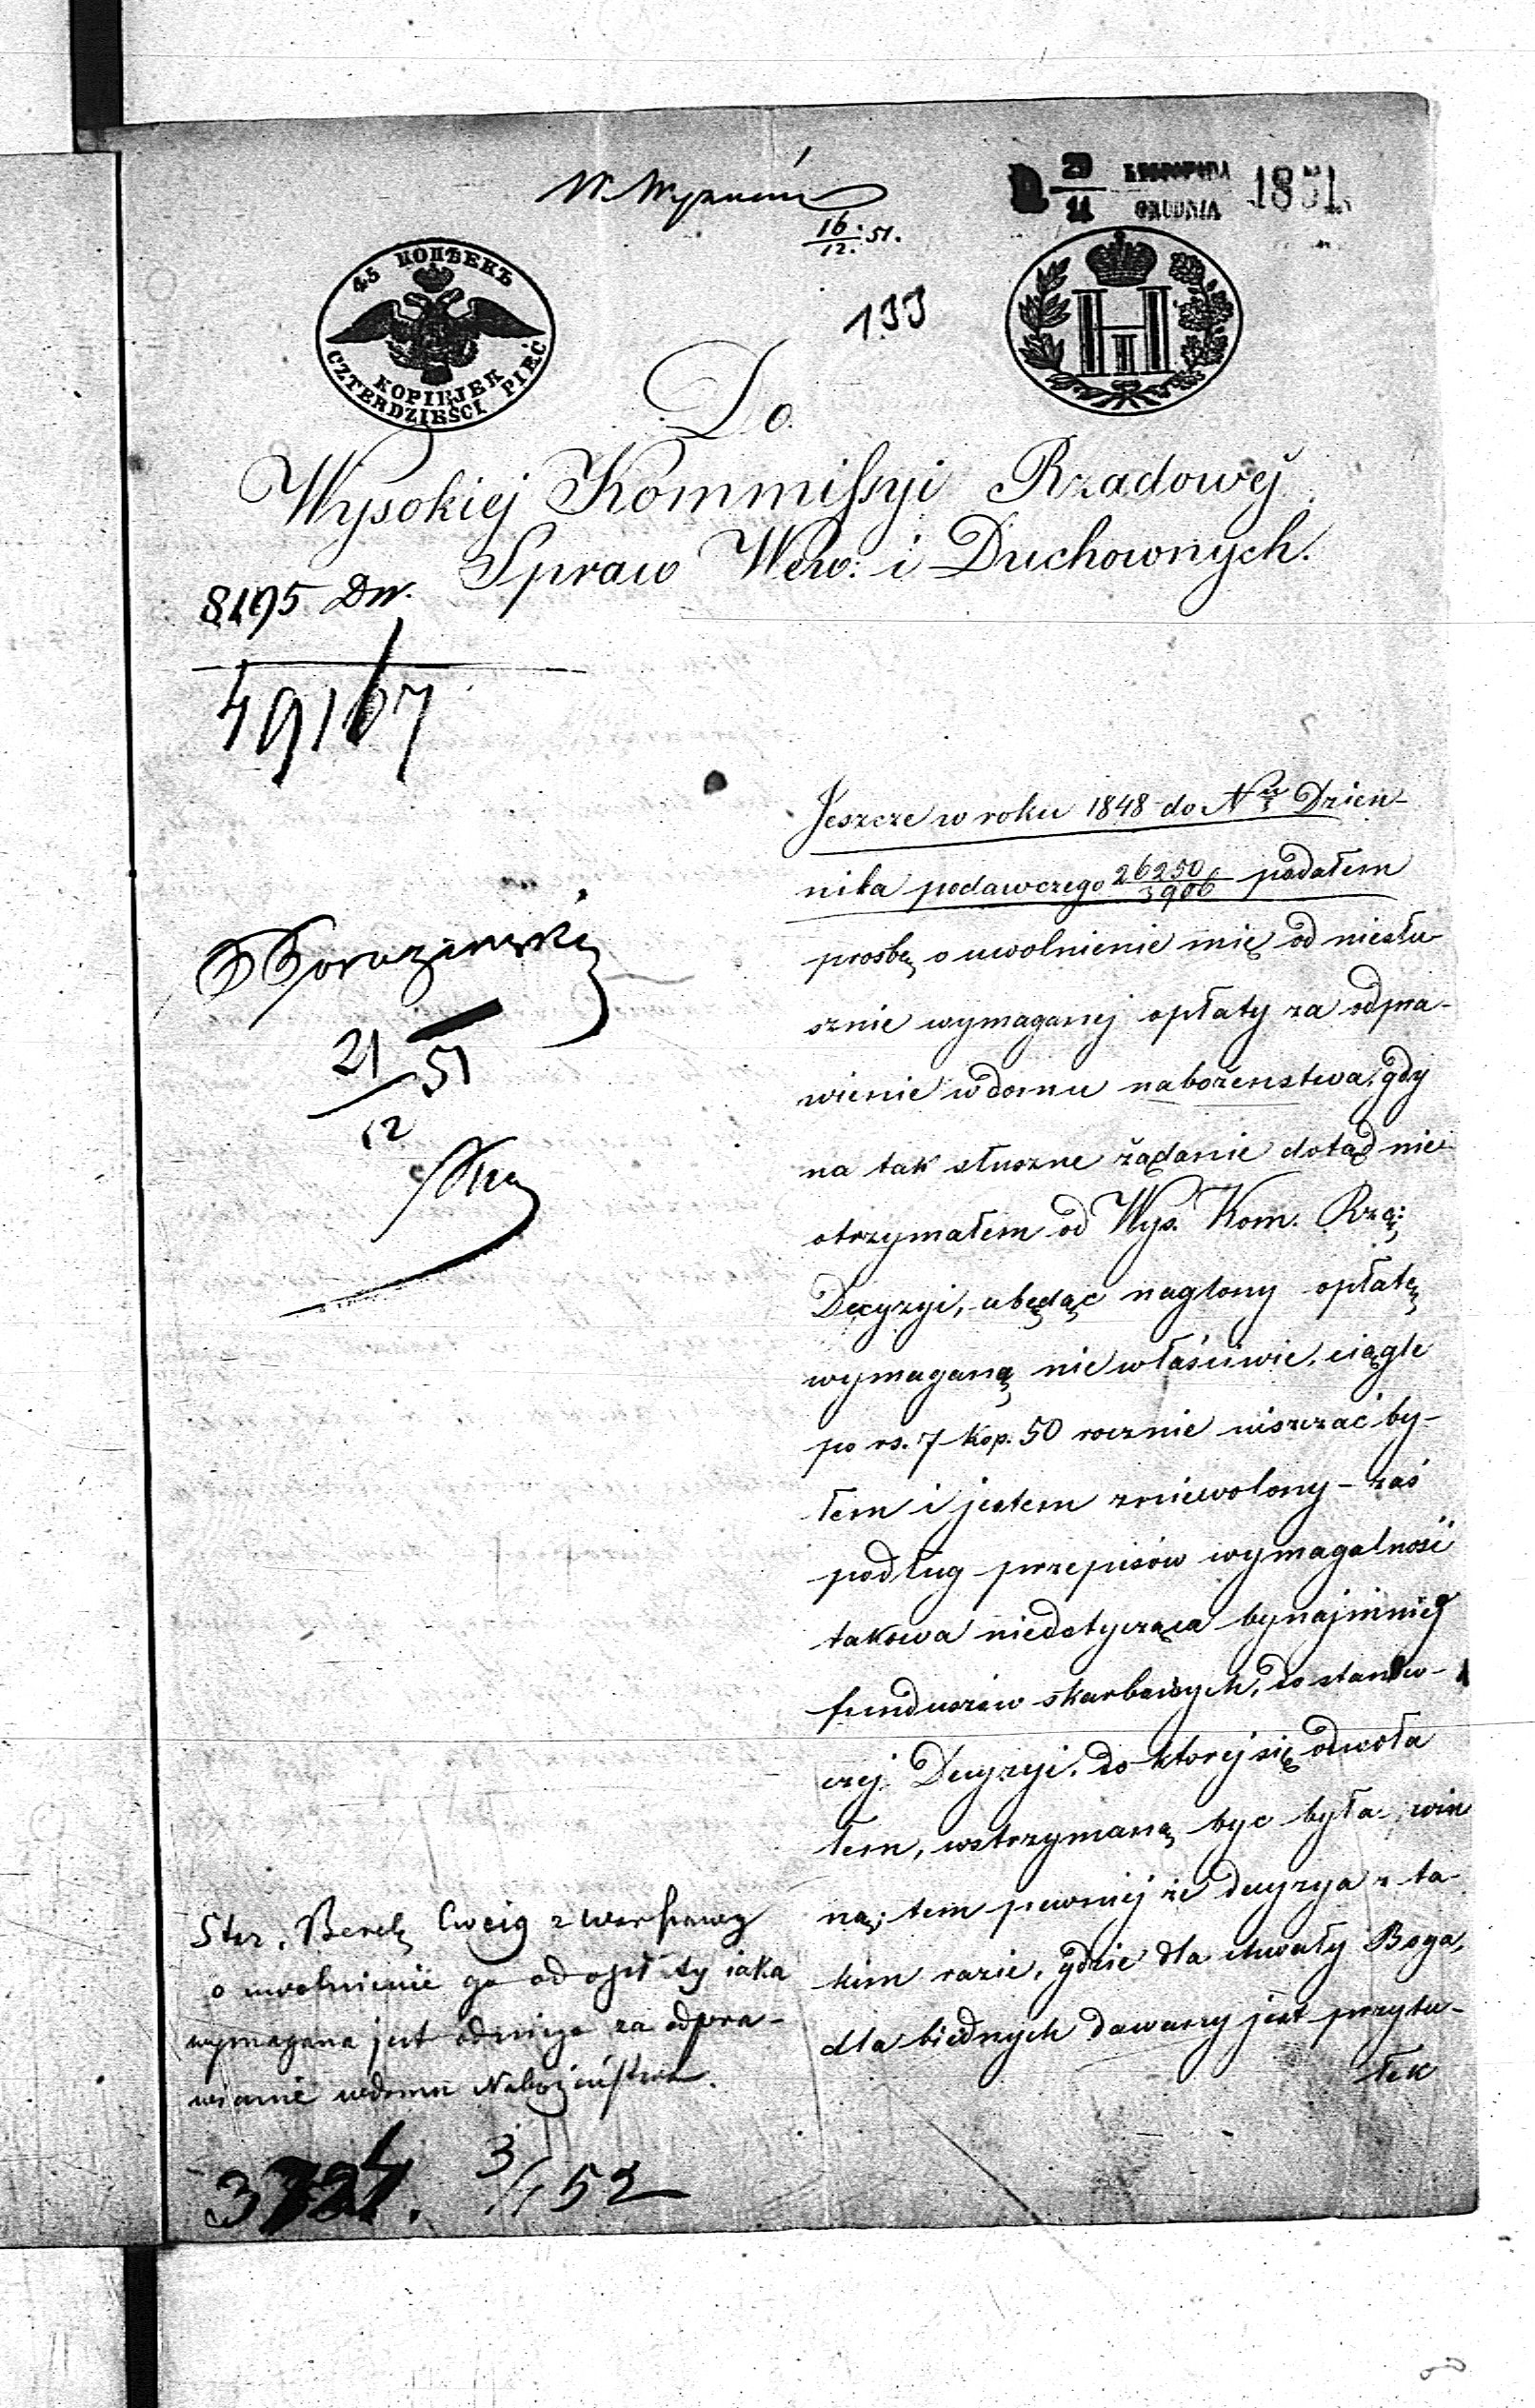 W. Wyznań
16/12. 51.
D 29/11 LISTOPADA GRUDNIA 1851.
133
45 КОПѢЕКЪ
KOPIEJEK
CZTERDZIEŚCI PIĘĆ
Do
Wysokiej Kommissyi Rządowej
Spraw Wew: i Duchownych.
8195 Dw.
49167
21/12 51
Jeszcze w roku 1848 do Nru Dzien-
nika podawczego 26250/3906 podałem
prosbę o uwolnienie mię od niesłu-
sznie wymaganej opłaty za odpra-
wienie w domu nabożenstwa, gdy
na tak słuszne żądanie dotąd nie
otrzymałem od Wys. Kom. Rzą:
Decyzyi, a będąc naglony opłatę
wymaganą niewłaściwie, ciągle
po rs. 7 kop. 50 rocznie uiszczać by-
łem i jestem zniewolony – zaś
podług przepisów wymagalność
takowa niedotycząca bynajmniej
funduszów skarbowych, do stanow-
czej Decyzyi, do ktorej się odwoła
łem, wstrzymaną byc była win
na; tem pewniej że decyzya w ta-
kim razie, gdzie dla chwały Boga,
dla biednych dawany jest przytu-
łek
Star. Berek Cweig z Warszawy
o uwolnienie go od opłaty iaka
wymagana jest od niego za odpra-
wianie w domu Nabożeństwa.
3724. 3/1 52